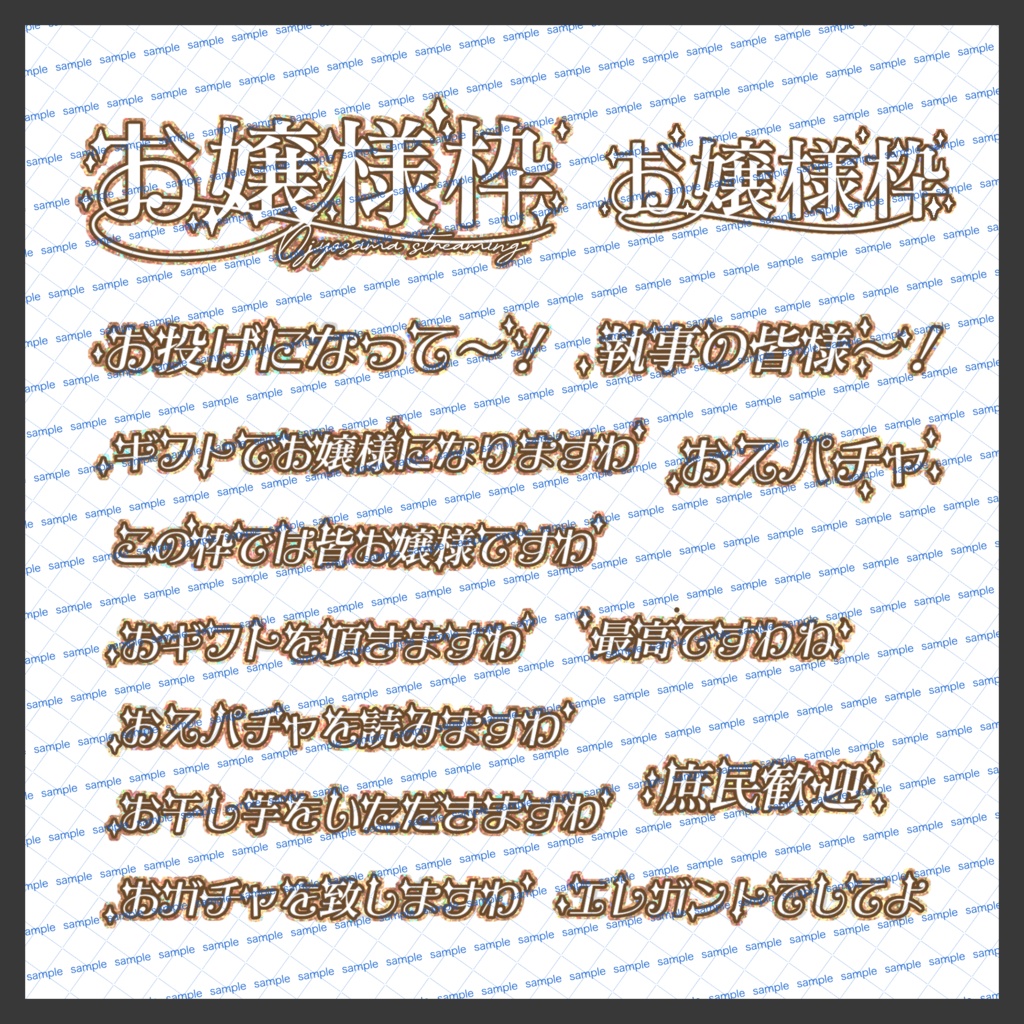 お嬢様枠
Ojyosama streaming
お嬢様枠
お投げになって～！
執事の皆様～！
ギフトでお嬢様になりますわ
おスパチャ
この枠では皆お嬢様ですわ
おギフトを頂きますわ
最高ですわね
おスパチャを読みますわ
庶民歓迎
お干し芋をいただきますわ
おガチャを致しますわ
エレガントでしてよ
sample